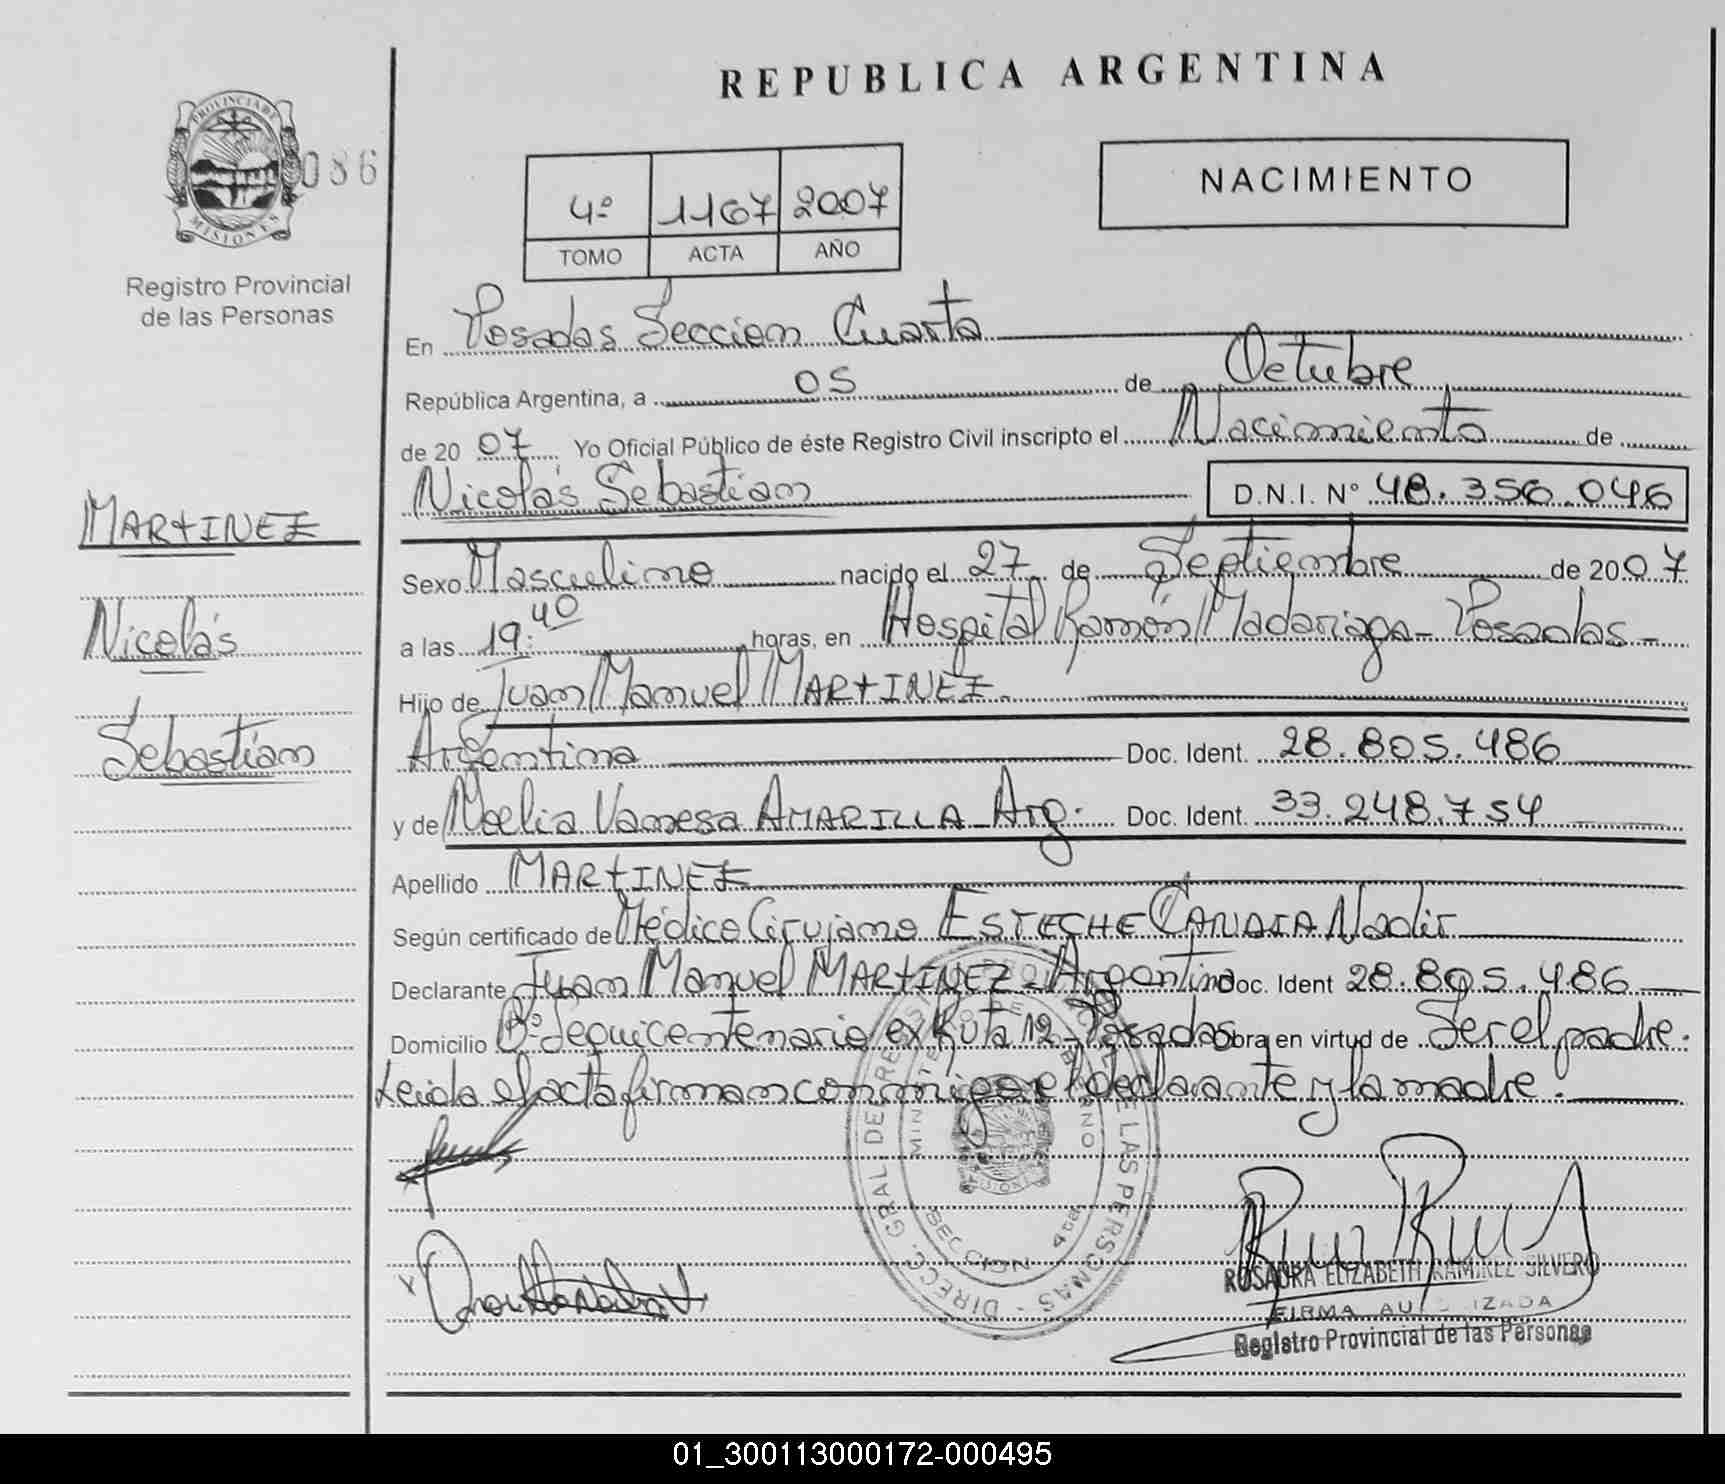 REPUBLICA ARGENTINA
PROVINCIA DE
MISIONES
086
Registro Provincial
de las Personas
4º 1167 2007
TOMO ACTA AÑO
NACIMIENTO
En Posadas Seccion Cuarta
República Argentina, a 05 de Octubre
de 20 07 Yo Oficial Público de éste Registro Civil inscripto el Nacimiento de
Nicolás Sebastian D.N.I. Nº 48.356.046
MARTINEZ
Nicolás
Sebastian
Sexo Masculino nacido el 27 de Septiembre de 20 07
a las 19:40 horas, en Hospital Ramón Madariaga - Posadas -
Hijo de Juan Manuel MARTINEZ
Argentina Doc. Ident. 28.805.486
y de Noelia Vanesa AMARILLA - Arg. Doc. Ident. 33.248.754
Apellido MARTINEZ
Según certificado de Médico Cirujano ESTECHE Nadir
Declarante Juan Manuel MARTINEZ - Argentino Doc. Ident 28.805.486
Domicilio Bº Sequicentenario ex Ruta 12 - Posadas Obra en virtud de Ser el padre.
Leida el acta firman conmigo el declarante y la madre.
DIRECC. GRAL DE LAS PERSONAS
SECCION 4ta
ROSAURA ELIZABETH RAMIREZ SILVERO
FIRMA AUTORIZADA
Registro Provincial de las Personas
01_300113000172-000495